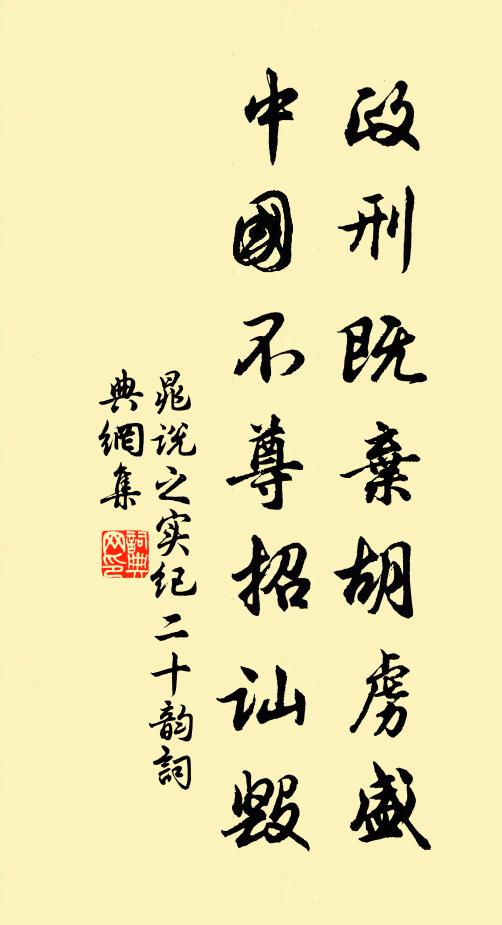 政刑既棄胡虏盛
中國不尊招讪毁
晁说之实纪二十韵詞
典網集
詞典
网印